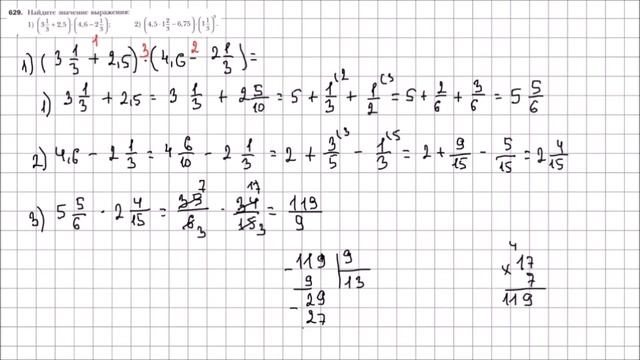 629. Найдите значение выражения:
1) (3 1/3 + 2,5) · (4,6 − 2 1/3);   2) (4,5 · 1 2/3 − 6,75) · (1 1/3)².
1) (3 1/3 + 2,5) · (4,6 − 2 1/3) =
1 3 2
1) 3 1/3 + 2,5 = 3 1/3 + 2 5/10 = 5 + 1/3 (2 + 1/2 (3 = 5 + 2/6 + 3/6 = 5 5/6
2) 4,6 − 2 1/3 = 4 6/10 − 2 1/3 = 2 + 3/5 (3 − 1/3 (5 = 2 + 9/15 − 5/15 = 2 4/15
3) 5 5/6 · 2 4/15 = 35/6 · 34/15 = 119/9
7 17
3 3
− 119 | 9
9 | 13
− 29
27
4
× 17
7
119